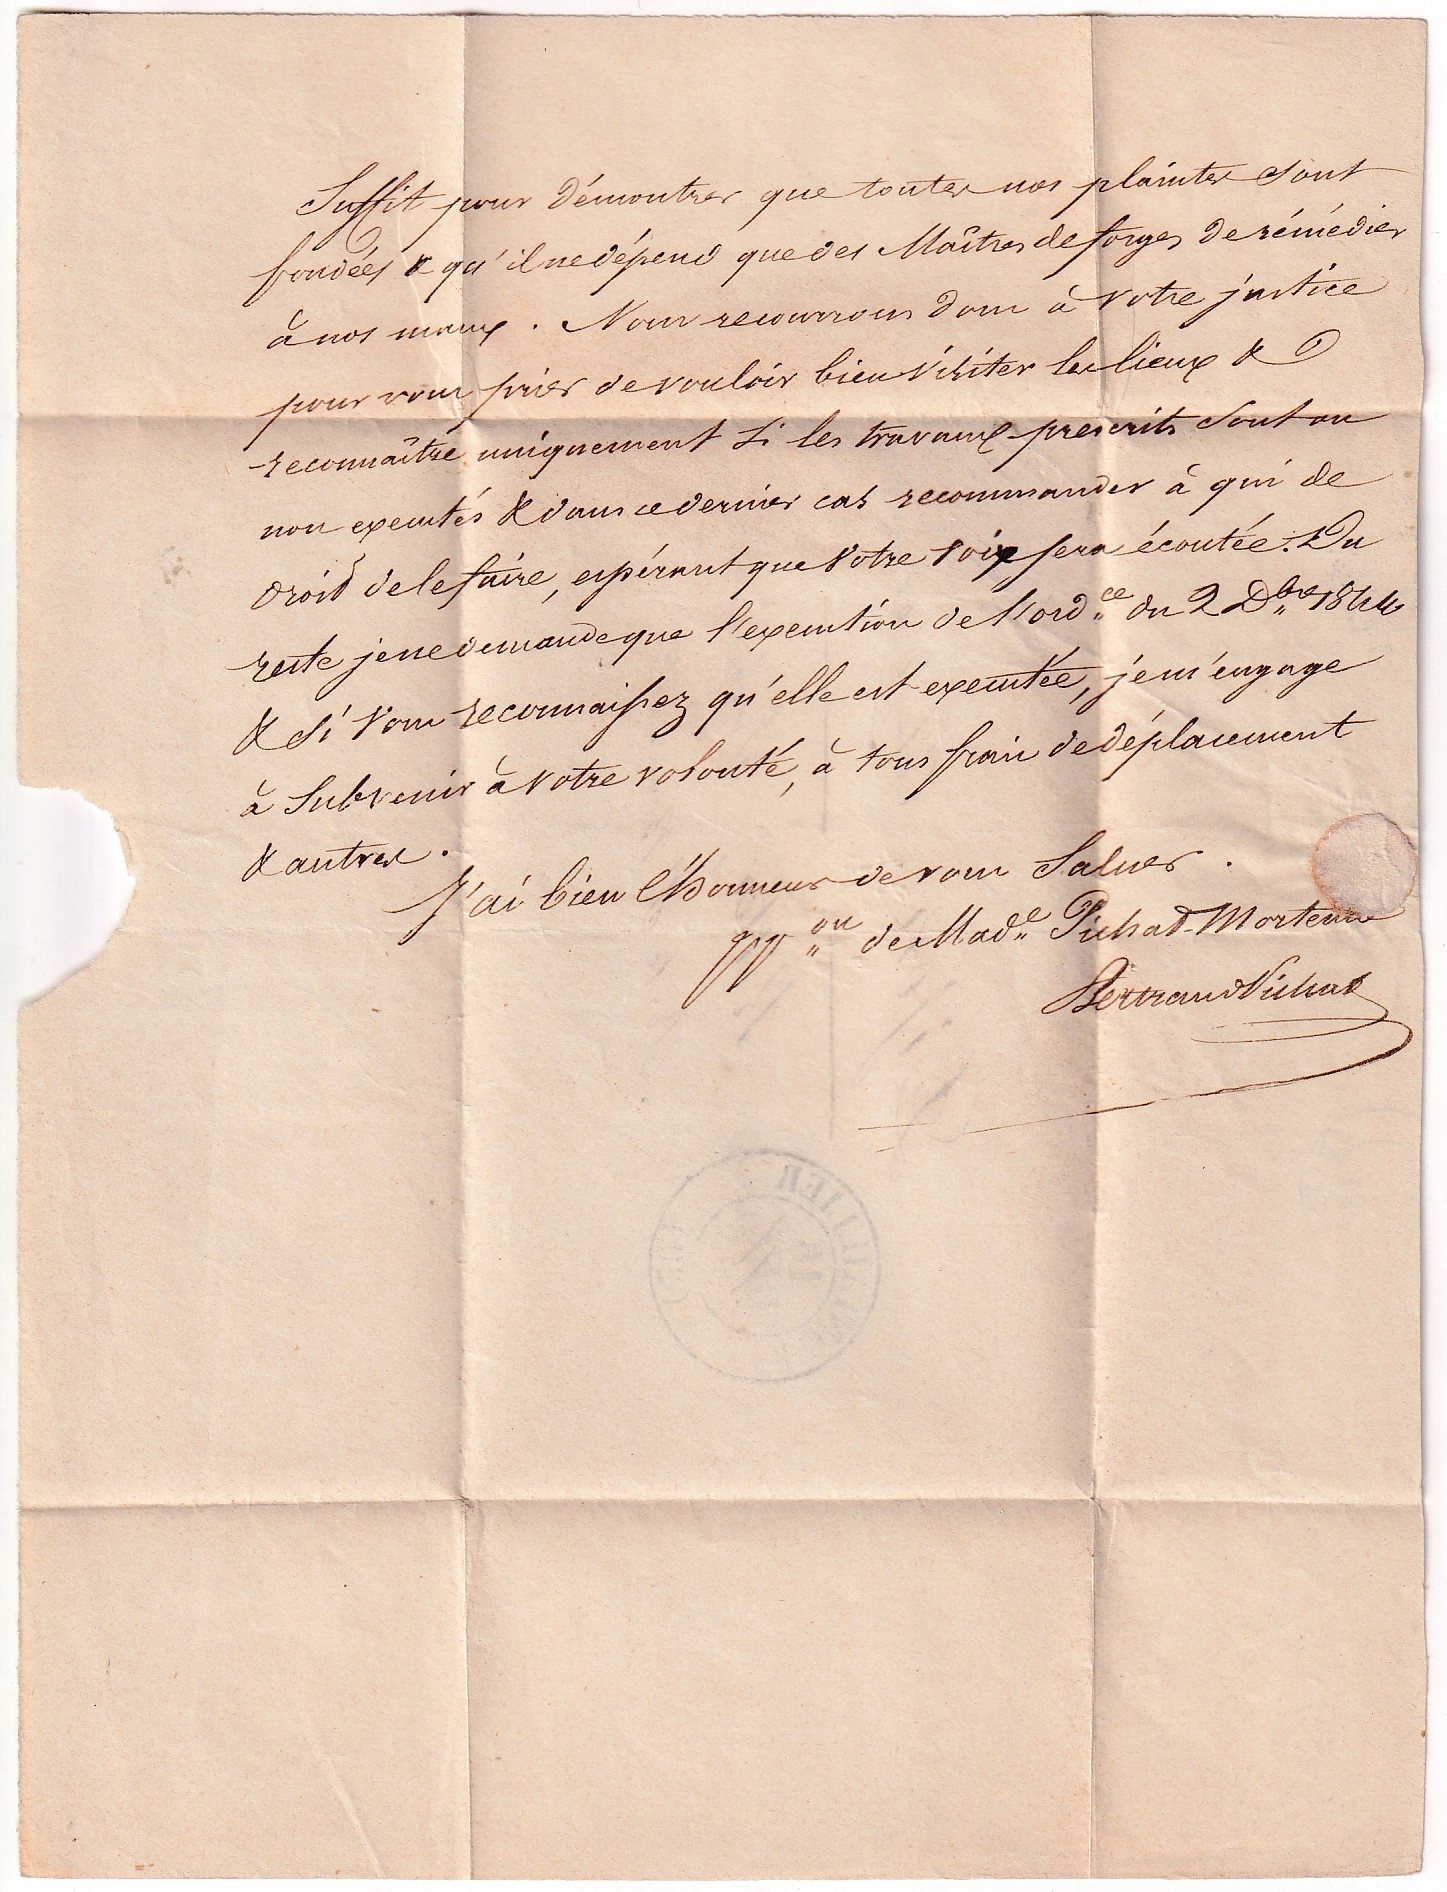 Suffit pour démontrer que toutes nos plaintes sont
fondées & qu'il ne dépend que des Maîtres de forges de rémédier
à nos maux. Nous recourrons donc à votre justice
pour vous prier de vouloir bien visiter les lieux &
reconnaître uniquement si les travaux prescrits sont ou
non executés & dans ce dernier cas recommander à qui de
droit de le faire, espérant que votre voix sera écoutée. Du
reste je ne demande que l'execution de l'ord.ce du 2 Dbre 1844
& si vous reconnaissez qu'elle est executée, je m'engage
à subvenir à votre volonté, à tous frais de déplacement
& autres.
J'ai bien l'honneur de vous saluer.
pp.on de Made Pichat
Bertrand Pichat